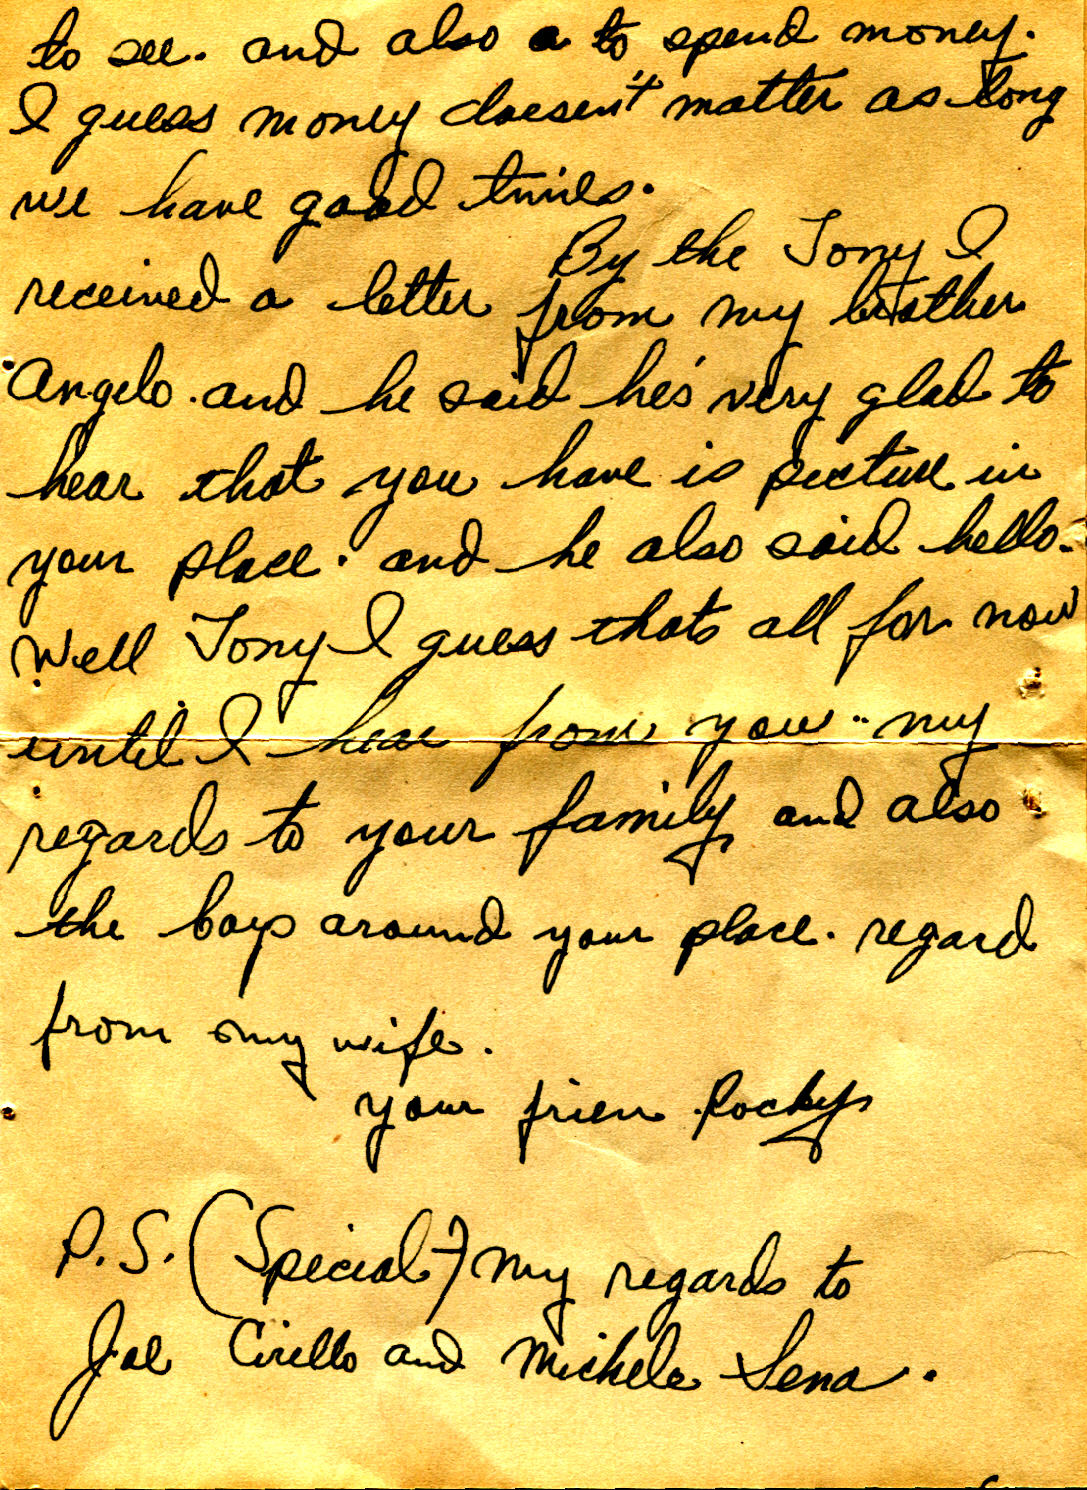 to see. and also a to spend money.
I guess money doesen't matter as long
we have good times.
By the Tony I
received a letter from my brother
Angelo. and he said he's very glad to
hear that you have is picture in
your place. and he also said hello.
Well Tony I guess thats all for now
until I hear from you .. my
regards to your family and also
the boys around your place. regard
from my wife.
your frien Rocky
P.S. (Special) My regards to
Joe Cirello and Michele Sena.